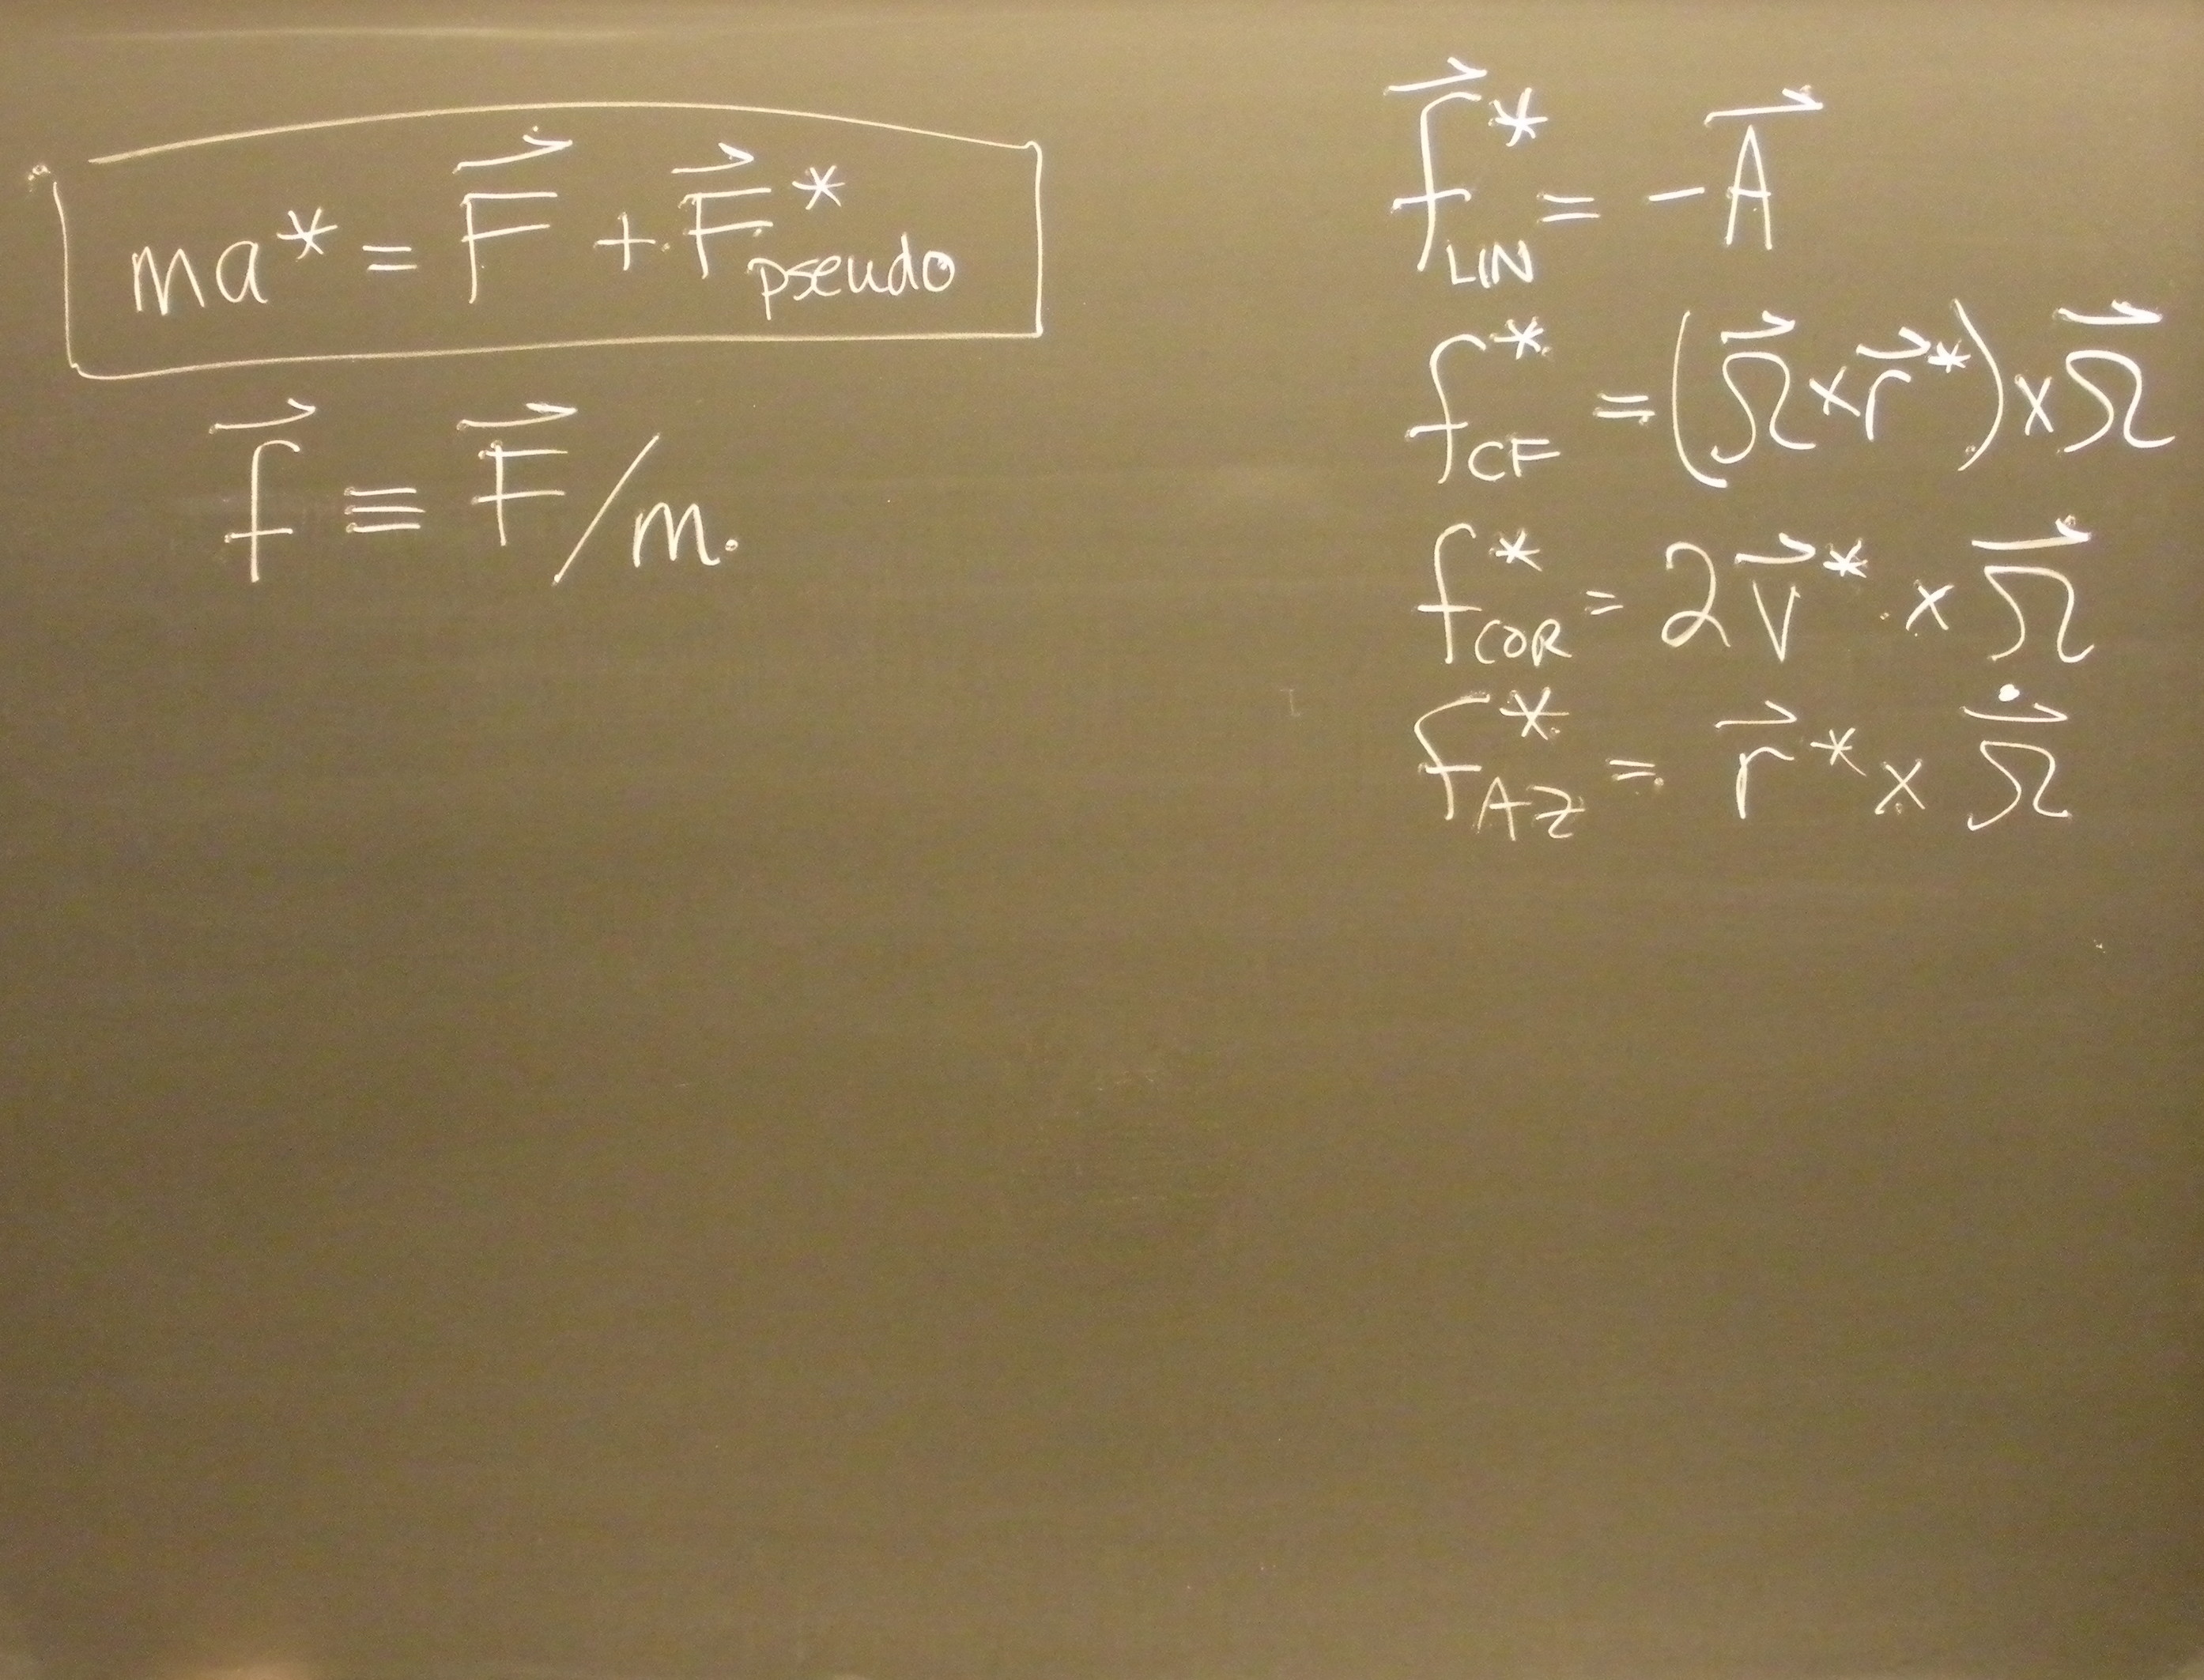 ma* = F⃗ + F⃗*pseudo
f⃗ ≡ F⃗/m.
f⃗*LIN = -A⃗
f*CF = (Ω⃗ × r⃗*) × Ω⃗
f*COR = 2v⃗* × Ω⃗
f*AZ = r⃗* × Ω⃗̇